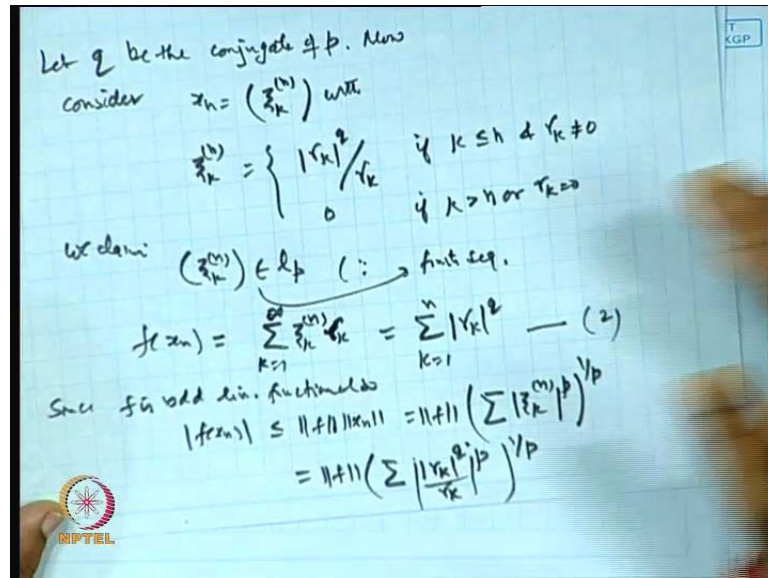 Let q be the conjugate of p. Now
consider xₙ = (ξₖ⁽ⁿ⁾) with
ξₖ⁽ⁿ⁾ = { |γₖ|^q / γₖ if k ≤ n & γₖ ≠ 0
0 if k > n or γₖ = 0
We claim (ξₖ⁽ⁿ⁾) ∈ lp (∵ → finite seq.
f(xₙ) = ∑_{k=1}^{∞} ξₖ⁽ⁿ⁾ γₖ = ∑_{k=1}^{n} |γₖ|^q — (2)
Since f is bdd lin. functional so
|f(xₙ)| ≤ ||f|| ||xₙ|| = ||f|| (∑ |ξₖ⁽ⁿ⁾|^p)^{1/p}
= ||f|| (∑ | |γₖ|^q / γₖ |^p)^{1/p}
NPTEL
T
KGP